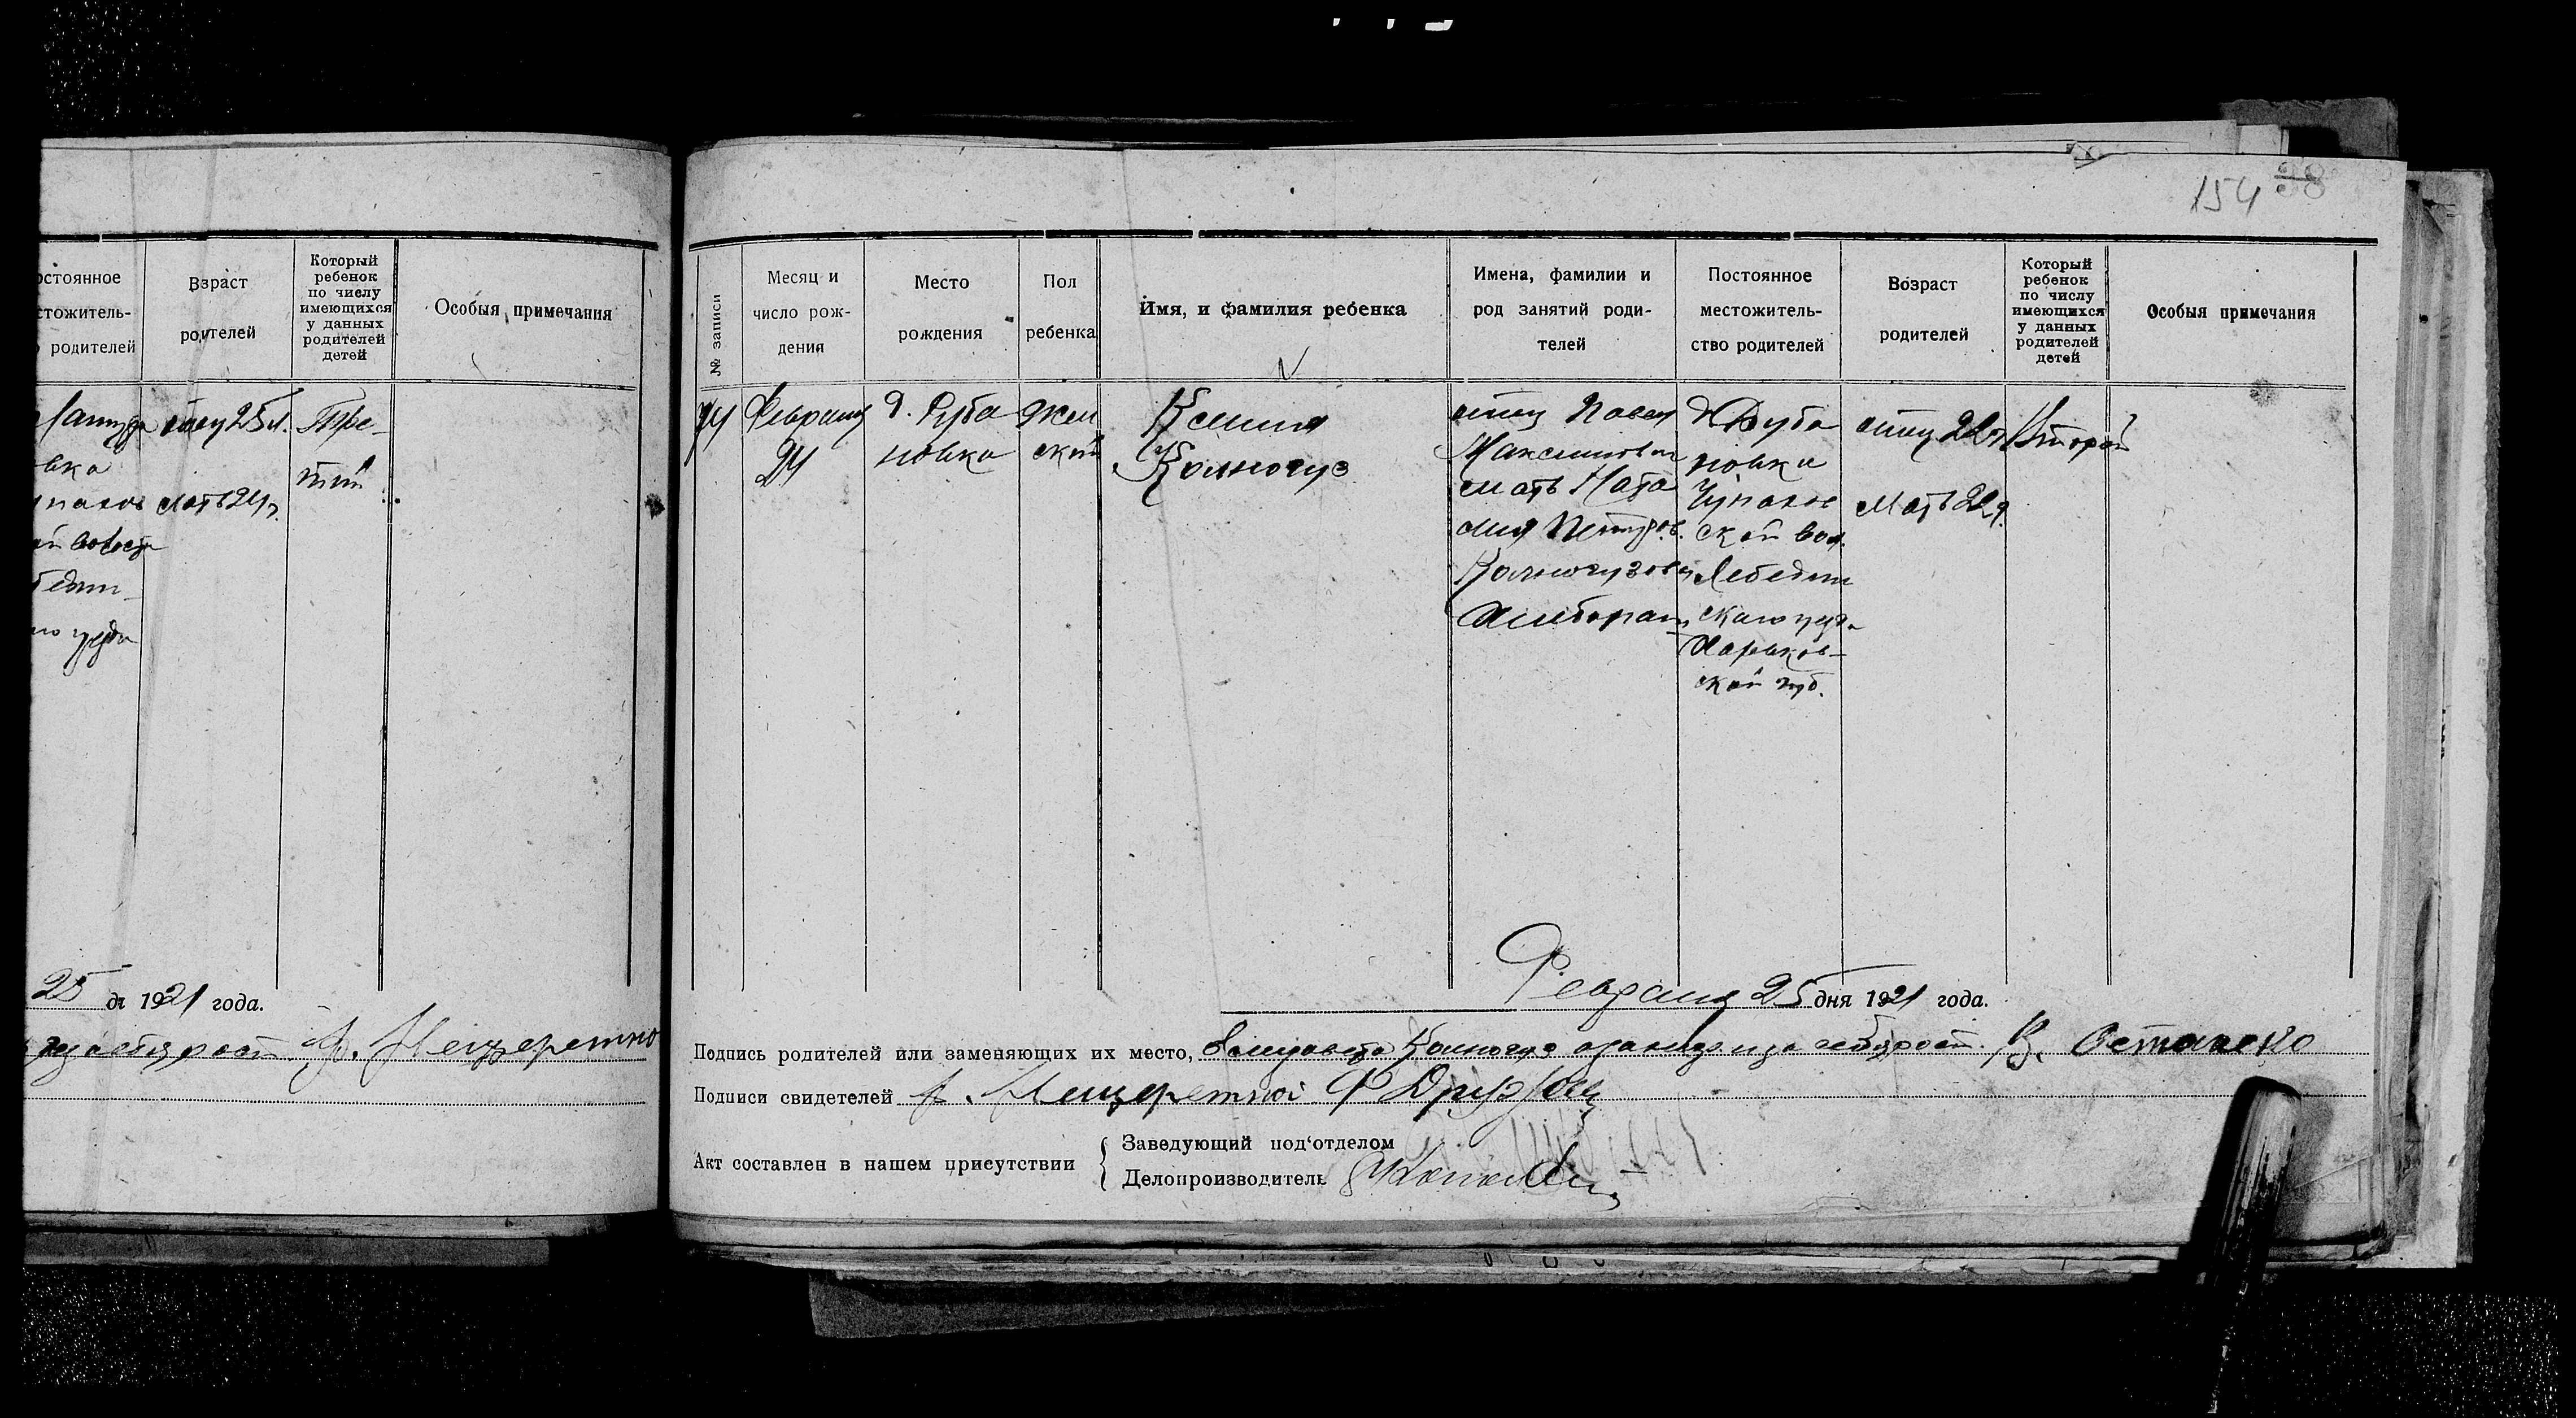 остоянное
стожитель-
родителей
Взраст
роителей
Который
ребенок
по числу
имеющихся
у данных
родителей
детей
Особыя примечания
отец 25 л.
Тре-
вка
тий
мать 24 г.
25 дг 1921 года.
154 38
№ записи
Месяц и
число рож-
дения
Место
рождения
Пол
ребенка
Имя, и фамилия ребенка
Имена, фамилии и
род занятий роди-
телей
Постоянное
местожитель-
ство родителей
Возраст
родителей
Который
ребенок
по числу
имеющихся
у данных
родителей
детей
Особыя примечания
74
Февраля
24
д. Руба
новка
жен
ский
Ксения
Колногуз
отец Павел
Максимович
мать Ната
лия Петров.
Колногузовы
д. Руба
новка
Чупахов
ской вол.
Лебедин
ского уезда
Харьков-
ской губ.
отец 22 г.
Мать 22 г.
Второй
Февраля 25 дня 1921 года.
Подпись родителей или заменяющих их место, Колногуз В. Остапенко
Подписи свидетелей
Акт составлен в нашем присутствии
Заведующий под'отделом
Делопроизводитель